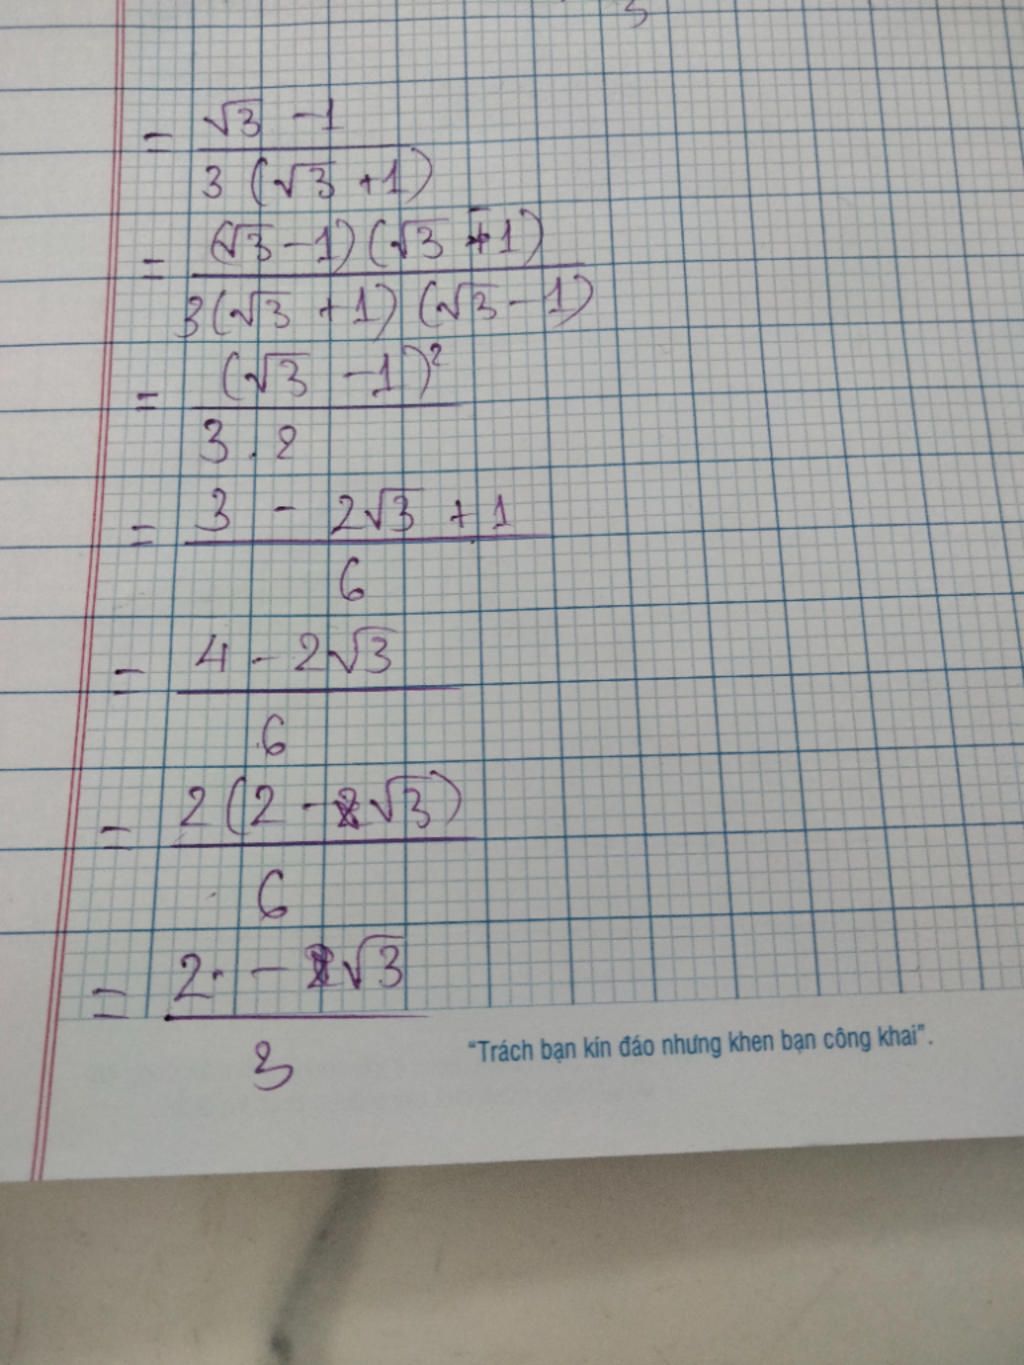 = (√3 - 1) / (3(√3 + 1))
= ((√3 - 1)(√3 - 1)) / (3(√3 + 1)(√3 - 1))
= (√3 - 1)² / (3 . 2)
= (3 - 2√3 + 1) / 6
= (4 - 2√3) / 6
= 2(2 - √3) / 6
= (2 - √3) / 3
"Trách bạn kín đáo nhưng khen bạn công khai".